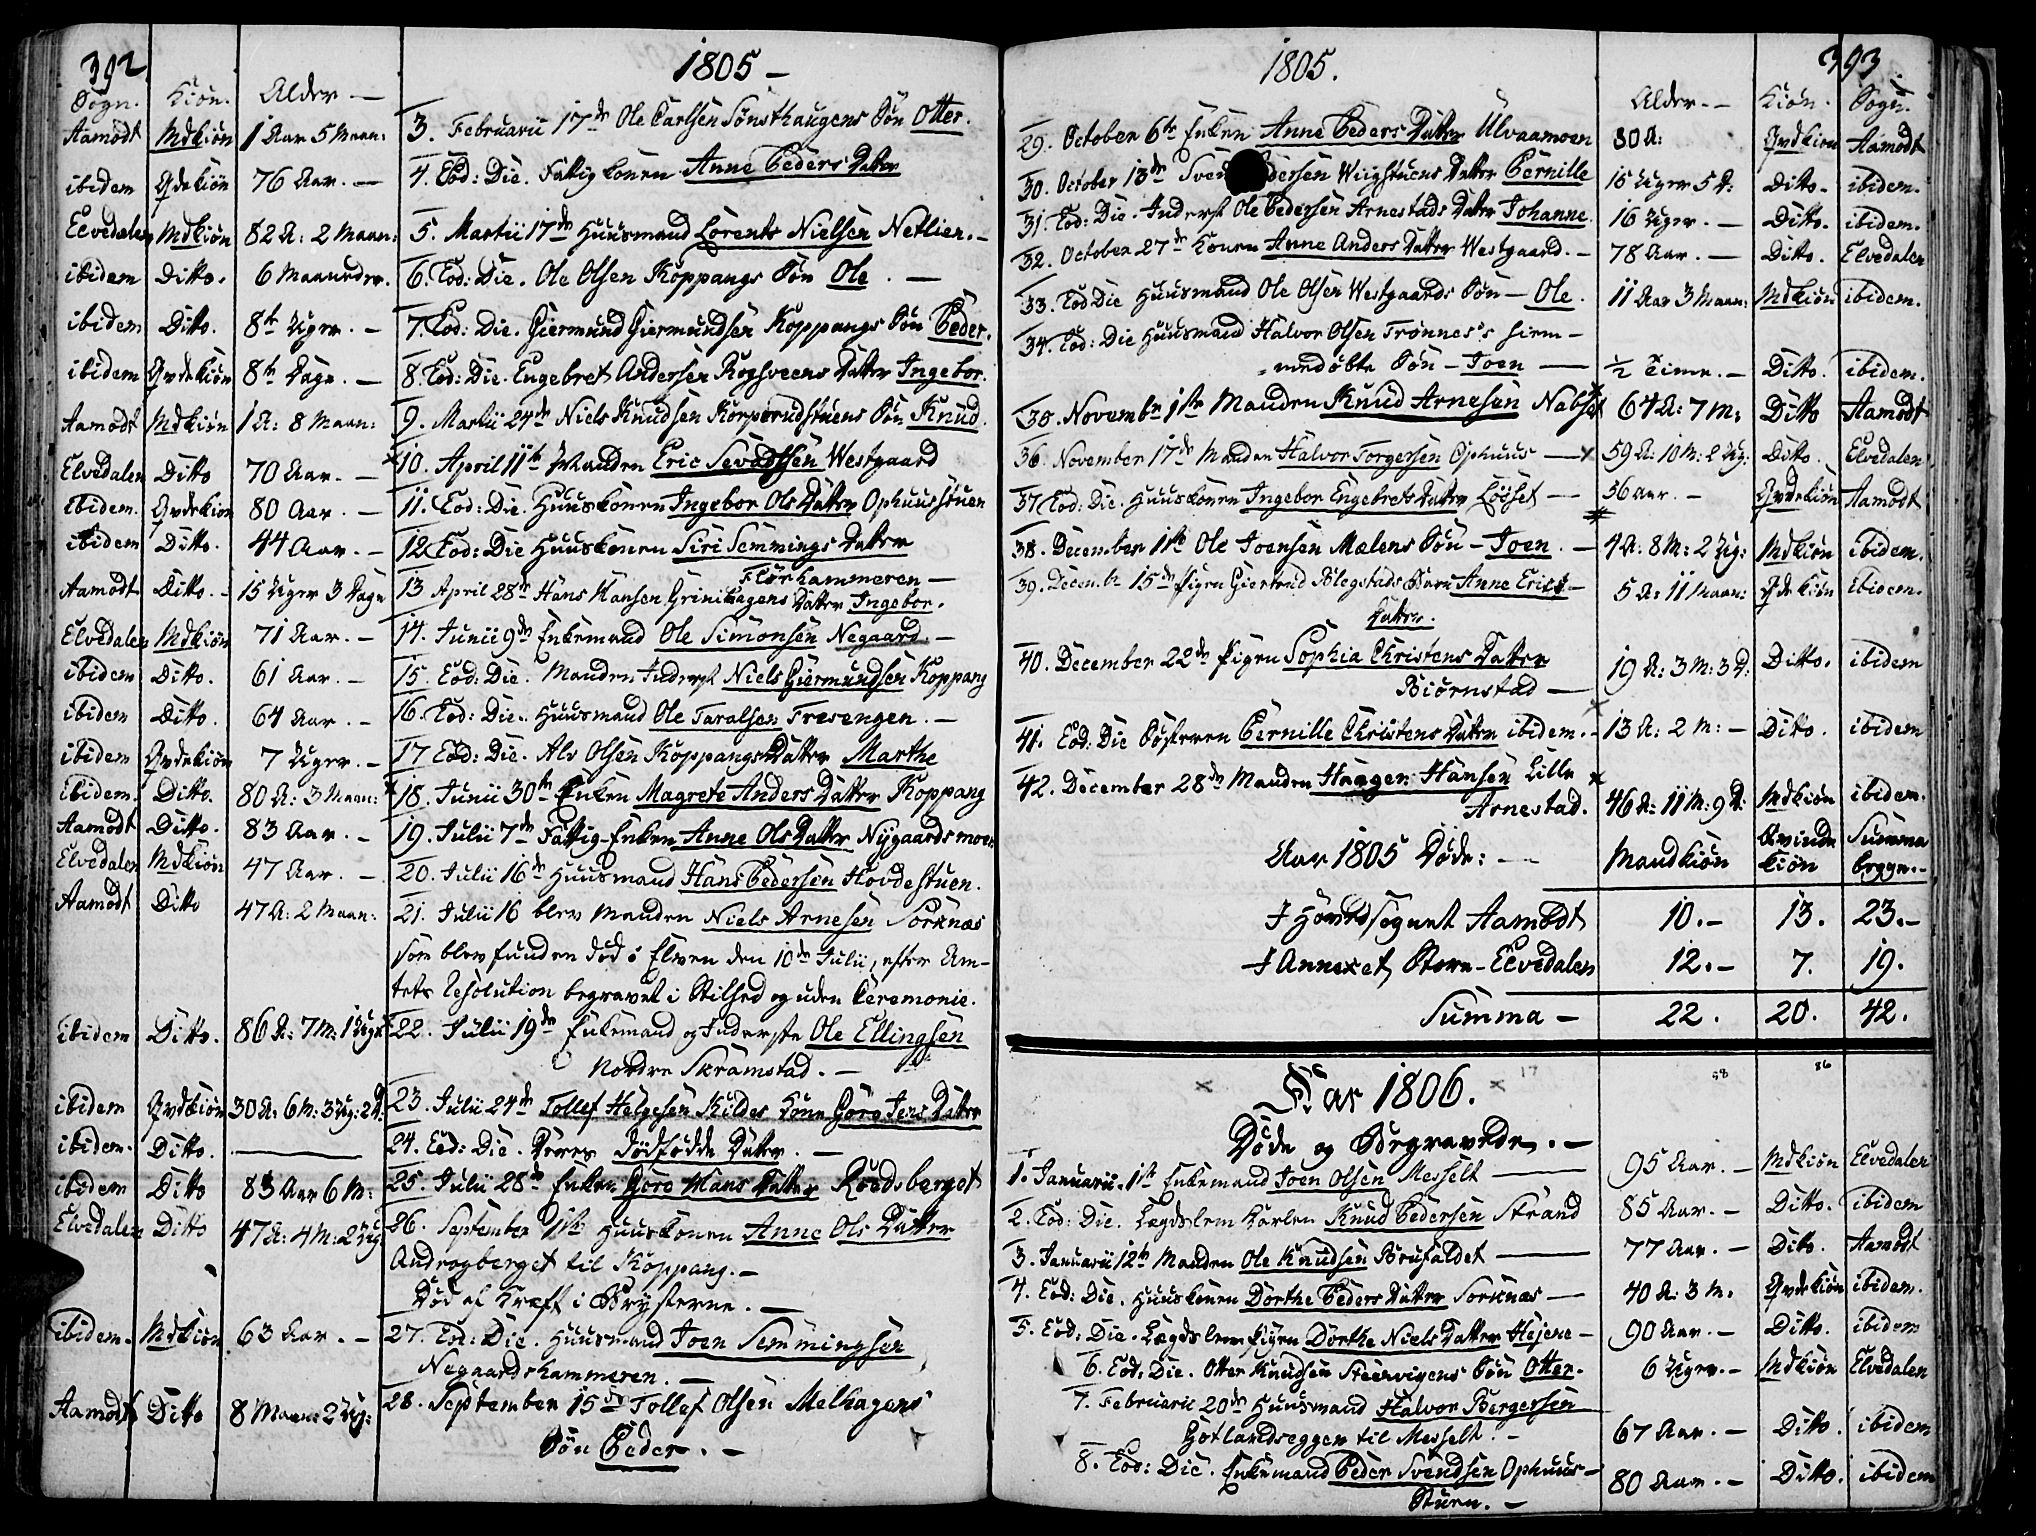 392
1805 –
Sogn. Kiön. Alder –
Aamodt Mdkiön 1 Aar 5 Maan: 3. Februarii 17de Ole Carlsen Sönsthaugens Sön Otter.
ibidem Qvdekiön 76 Aar. – 4. Eod: Die. Fattig Konen Anne Peders Datter
Elvedalen Mdkiön 82 A: 2 Maan: 5. Martii 17de Huusmand Lorents Nielsen Netlien. –
ibidem Ditto. 6 Maaneder. 6. Eod: Die. Ole Olsen Koppangs Sön Ole. –
ibidem Ditto. 8te Uger. – 7. Eod: Die. Giermund Giermundsen Koppangs Sön Peder.
ibidem Qvdekiön 8te Dage. – 8. Eod: Die. Engebret Andersen Rogsveens Datter Ingebor.
Aamodt Mdkiön 1 A: 8 Maan: 9. Martii 24de Niels Knudsen Korperudstuens Sön Knud.
Elvedalen Ditto 70 Aar. – 10. April 11te Manden Eric Sevadsen Westgaard
Ibidem. Qvdekiön 80 Aar. – 11. Eod: Die. Huuskonen Ingebor Ols Datter Ophuusstuen
ibidem Ditto. 44 Aar. – 12. Eod: Die Huuskonen Siri Semmings Datter
Flörhammeren –
Aamodt Ditto. – 15 Uger 3 Dage 13 April 28de Hans Hansen Grinihagens Datter Ingebor.
Elvedalen Mdkiön 71 Aar. – 14. Junii 9de Enkemand Ole Simonsen Negaard. –
ibidem Ditto. 61 Aar. – 15. Eod: Die. Manden Inderst Niels Giermundsen Koppang
ibidem Ditto. 64 Aar. – 16. Eod: Die. Huusmand Ole Taralsen Tresengen. –
ibidem Qvdekiön 7 Uger. – 17 Eod: Die. Als Olsen Koppangs Datter Marthe
Ibidem. Ditto. 80 A: 3 Maan: 18. Junii 30te Enken Magrete Anders Datter Koppang
Aamodt Ditto. 83 Aar. – 19. Julii 7de Fattig-Enken Anne Ols Datter Nÿgaardsmoen
Elvedalen Mdkiön 47 Aar. – 20. Julii 16de Huusmand Hans Pedersen Hovdestuen.
Aamodt Ditto 47 A: 2 Maan: 21. Julii 16 blev Manden Niels Arnesen Sorknæs
som blev funden död i Elven den 10de Julii, efter Am-
tets Resolution begravet i Stilhed og uden Ceremonie.
ibidem Ditto. 86 A: 7 M: 1 Uge 22. Julii 19de Enkemand og Inderste Ole Ellingsen
Nordre Skramstad. –
ibidem Qvdkiön 30 A: 6 M: 3 Ug: 2 D: 23. Julii 24de Tollef Helgesen Kildes Kone Goro Jens Datter
ibidem. Ditto. 24. Eod: Die. Deres dödfödde Datter. –
ibidem Ditto 83 Aar 6 M: 25. Julii 28de Enken Goro Hans Datter Rödsberget
Elvedalen Ditto 47 A: 4 M: 2 Ug: 26. September 1ste Huuskonen Anne Ols Datter
Androgberget til Koppang. –
Död af Kræft i Brÿsterne. –
ibidem. Mdkiön 63 Aar. – 27. Eod: Die. Huusmand Joen Semmingsen
Negaardshammeren. –
Aamodt Ditto 8 Maan: 2 Ug: 28. September 15de Tollef Olsen Melhagens
Sön Peder. –
1805.
393
Alder. – Kiön. Sogn.
29. October 6te Enken Anne Peders Datter Ulvaamoen 80 A: Qvdkiön Aamodt
30. October 13de Svend Pedersen Wiigstuens Datter Pernille 15 Uger 5 D: Ditto. ibidem.
31. Eod: Die. Inderst Ole Pedersen Arnestads Datter Johanne. 16 Uger. – Ditto. ibidem.
32. October 27de Konen Anne Anders Datter Westgaard. – 78 Aar. – Ditto. Elvedalen
33. Eod Die Huusmand Ole Olsen Westgaards Sön – Ole. 11 Aar 3 Maan: Mdkiön ibidem.
34. Eod: Die Huusmand Halvor Olsen Trönnes's hiem-
medöbte Sön – Joen – ½ Time. – Ditto. ibidem.
35. Novembr 1ste Manden Knud Arnesen Nabset 64 A: 7 M: Ditto Aamodt
36. November 17de Manden Halvor Torgersen Ophuus – 59 A: 10 M: 2 Ug: Ditto. Elvedalen
37 Eod: Die. Huuskonen Ingebor Engebrets Datter Löset – 56 aar. – Qvdekiön Aamodt
38. December 11te Ole Joensen Mælens Sön – Joen. – 4 A: 8 M: 2 Ug: Mdkiön ibidem.
39. Decembr 15de Pigen Giertrud Blegstads Barn Anne Erics – 5 A: 11 Maan: Qvdekiön Ibidem.
Datter.
40. December 22de Pigen Sophia Christens Datter 19 A: 3 M: 3 D: Ditto. ibidem
Biörnstad –
41. Eod: Die Sösteren Pernille Christens Datter ibidem. – 13 A: 2 M: – Ditto. ibidem
42. December 28de Manden Haagen Hansen Lille
Arnestad. 46 A: 11 M: 9 D: Mdkiön ibidem.
Aar 1805 Döde: – Mandkiön Qvindekiön Summa begge. –
I Hovedsognet Aamodt 10. – 13. 23. –
I Annexet, Store-Elvedalen 12. – 7. 19.
Summa – 22. 20. 42.
Aar 1806. 17 58 86
Döde og Begravede. –
1. Januarii. 1ste Enkemand Joen Olsen Messelt – 95 Aar. – Mdkiön Elvedalen
2. Eod: Die. Lægdslem Karlen Knud Pedersen Strand 85 Aar. – Ditto. ibidem
3. Januarii 12te Manden Ole Knudsen Brufaldet – 77 Aar. – Ditto. Aamodt
4. Eod: Die. Huuskonen Dorthe Peders Datter Sorknæs – 40 A: 3 M. Qvdekiön ibidem.
5. Eod: Die. Lægdslem Pigen Dorthe Niels Datter Hejere – 90 Aar. – Ditto. ibidem
6. Eod: Die. Otter Knudsen Steervigens Sön Otter. 6 Uger. – Mdkiön Elvedalen
7. Februarii 20de Huusmand Halvor Bergersen
Götlandseggen til Messelt. – 67 Aar. – Ditto. ibidem
8. Eod: Die. Enkemand Peder Svendsen Ophuus- 80 Aar. – Ditto. ibidem
Stuen. –